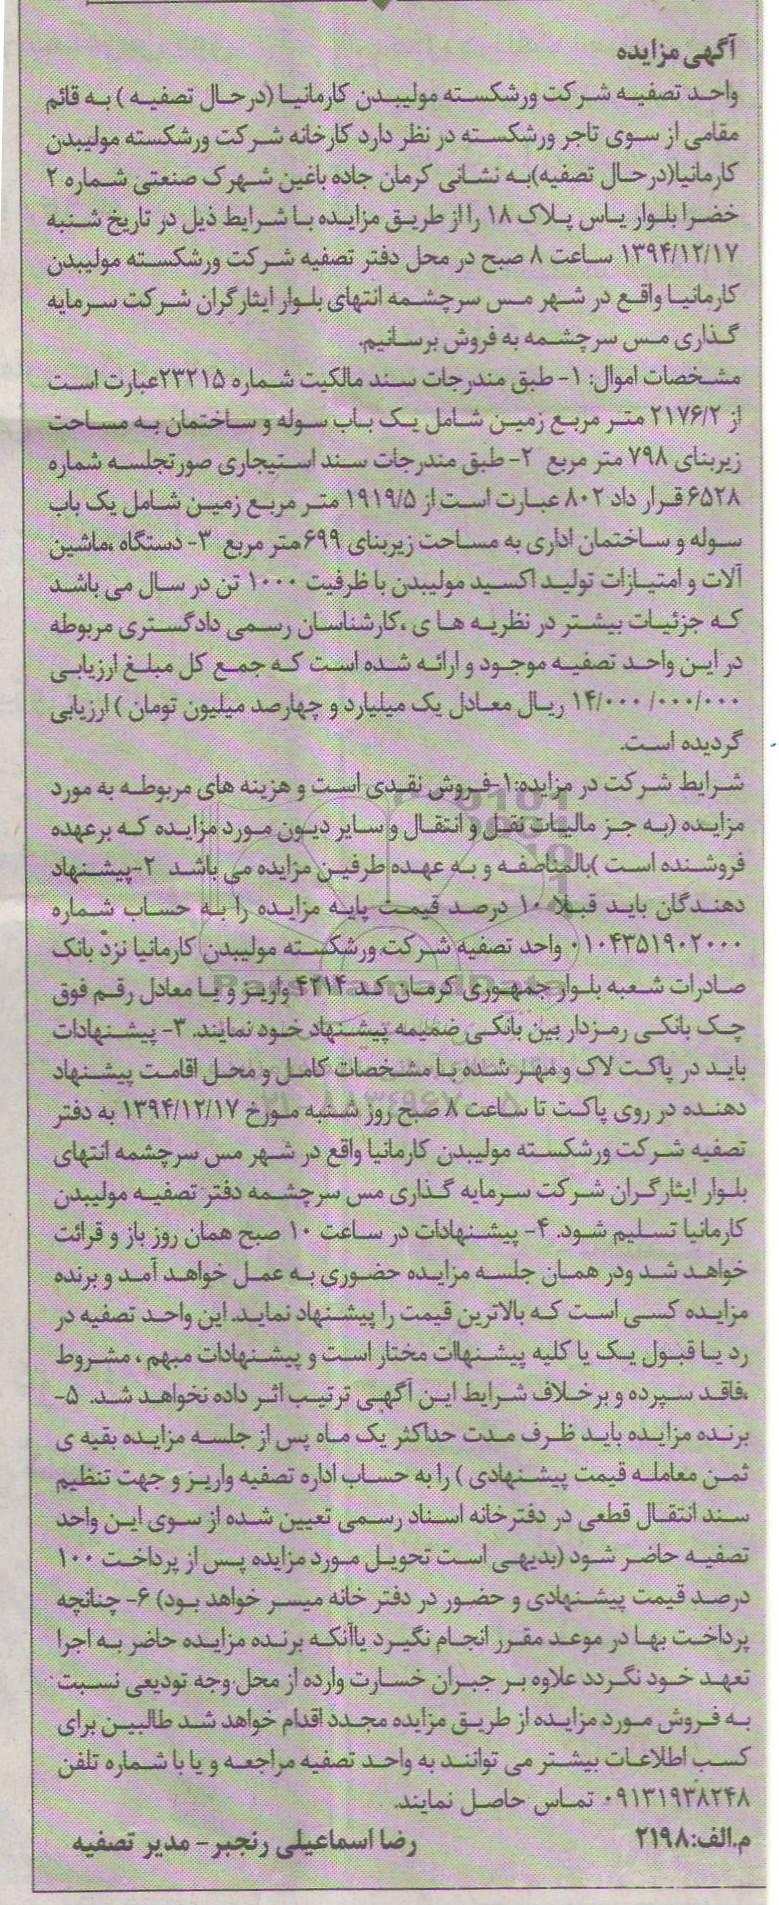 آگهی مزایده
واحد تصفیه شرکت ورشکسته مولیبدن کارمانیا (درحال تصفیه ) به قائم
مقامی از سوی تاجر ورشکسته در نظر دارد کارخانه شرکت ورشکسته مولیبدن
کارمانیا(درحال تصفیه)به نشانی کرمان جاده باغین شهرک صنعتی شماره ۲
خضرا بلوار یاس پلاک ۱۸ را از طریق مزایده با شرایط ذیل در تاریخ شنبه
۱۳۹۴/۱۲/۱۷ ساعت ۸ صبح در محل دفتر تصفیه شرکت ورشکسته مولیبدن
کارمانیا واقع در شهر مس سرچشمه انتهای بلوار ایثارگران شرکت سرمایه
گذاری مس سرچشمه به فروش برسانیم.
مشخصات اموال: ۱- طبق مندرجات سند مالکیت شماره ۲۳۲۱۵عبارت است
از ۲۱۷۶/۲ متر مربع زمین شامل یک باب سوله و ساختمان به مساحت
زیربنای ۷۹۸ متر مربع ۲- طبق مندرجات سند استیجاری صورتجلسه شماره
۶۵۲۸ قرار داد ۸۰۲ عبارت است از ۱۹۱۹/۵ متر مربع زمین شامل یک باب
سوله و ساختمان اداری به مساحت زیربنای ۶۹۹متر مربع ۳- دستگاه ،ماشین
آلات و امتیازات تولید اکسید مولیبدن با ظرفیت ۱۰۰۰ تن در سال می باشد
که جزئیات بیشتر در نظریه ها ی ،کارشناسان رسمی دادگستری مربوطه
در این واحد تصفیه موجود و ارائه شده است که جمع کل مبلغ ارزیابی
۱۴/۰۰۰/۰۰۰/۰۰۰ ریال معادل یک میلیارد و چهارصد میلیون تومان ) ارزیابی
گردیده است.
شرایط شرکت در مزایده:۱-فروش نقدی است و هزینه های مربوطه به مورد
مزایده (به جز مالیات نقل و انتقال و سایر دیون مورد مزایده که برعهده
فروشنده است )بالمناصفه و به عهده طرفین مزایده می باشد ۲-پیشنهاد
دهندگان باید قبلا ۱۰ درصد قیمت پایه مزایده را به حساب شماره
۰۱۰۴۳۵۱۹۰۲۰۰۰ واحد تصفیه شرکت ورشکسته مولیبدن کارمانیا نزد بانک
صادرات شعبه بلوار جمهوری کرمان کد ۴۲۱۴ واریز و یا معادل رقم فوق
چک بانکی رمزدار بین بانکی ضمیمه پیشنهاد خود نمایند. ۳- پیشنهادات
باید در پاکت لاک و مهر شده با مشخصات کامل و محل اقامت پیشنهاد
دهنده در روی پاکت تا ساعت ۸ صبح روز شنبه مورخ ۱۳۹۴/۱۲/۱۷ به دفتر
تصفیه شرکت ورشکسته مولیبدن کارمانیا واقع در شهر مس سرچشمه انتهای
بلوار ایثارگران شرکت سرمایه گذاری مس سرچشمه دفتر تصفیه مولیبدن
کارمانیا تسلیم شود. ۴- پیشنهادات در ساعت ۱۰ صبح همان روز باز و قرائت
خواهد شد ودر همان جلسه مزایده حضوری به عمل خواهد آمد و برنده
مزایده کسی است که بالاترین قیمت را پیشنهاد نماید. این واحد تصفیه در
رد یا قبول یک یا کلیه پیشنهاات مختار است و پیشنهادات مبهم ، مشروط
،فاقد سپرده و برخلاف شرایط این آگهی ترتیب اثر داده نخواهد شد. ۵-
برنده مزایده باید ظرف مدت حداکثر یک ماه پس از جلسه مزایده بقیه ی
ثمن معامله قیمت پیشنهادی ) را به حساب اداره تصفیه واریز و جهت تنظیم
سند انتقال قطعی در دفترخانه اسناد رسمی تعیین شده از سوی این واحد
تصفیه حاضر شود (بدیهی است تحویل مورد مزایده پس از پرداخت ۱۰۰
درصد قیمت پیشنهادی و حضور در دفتر خانه میسر خواهد بود) ۶- چنانچه
پرداخت بها در موعد مقرر انجام نگیرد یاآنکه برنده مزایده حاضر به اجرا
تعهد خود نگردد علاوه بر جبران خسارت وارده از محل وجه تودیعی نسبت
به فروش مورد مزایده از طریق مزایده مجدد اقدام خواهد شد طالبین برای
کسب اطلاعات بیشتر می توانند به واحد تصفیه مراجعه و یا با شماره تلفن
۰۹۱۳۱۹۳۸۲۴۸ تماس حاصل نمایند.
م.الف:۲۱۹۸ رضا اسماعیلی رنجبر- مدیر تصفیه